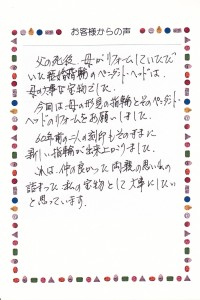 お客様からの声
父の死後、母がリフォームしていただ
いた結婚指輪のペンダントヘッドは、
母の大事な宝物でした。
今回は母の形見の指輪とそのペンダント
ヘッドのリフォームをお願いしました。
60年前の二人の刻印もそのままに
新しい指輪が出来上がりました。
これは、仲の良かった両親の思い出の
詰まった私の宝物として大事にしたい
と思っています。